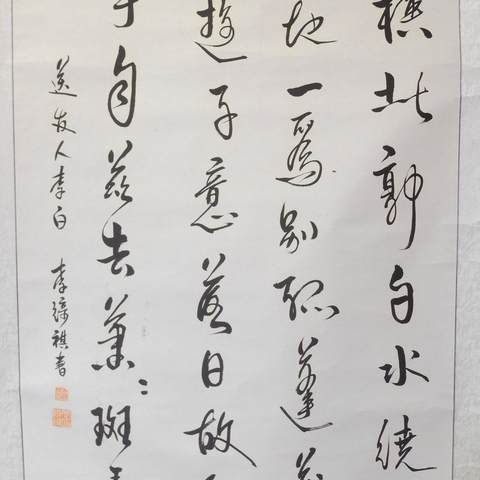 橫北郭白水繞
地一為別孤蓬萬
遊子意落日故
手自茲去蕭々斑
送友人李白 李祺書